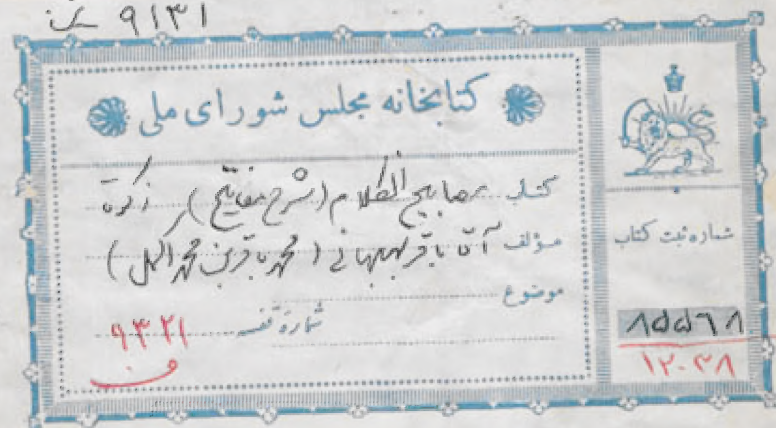 ۹۱۳۱
کتابخانه مجلس شورای ملی
کتاب مصابیح الظلام (شرح مفاتیح) زکوة
مؤلف آقا باقر بهبهانی (محمد باقر بن محمد اکمل)
موضوع
شماره قفسه ۹۳۲۱
ف
شماره ثبت کتاب
۸۵۵۶۸
۱۲۰۲۸